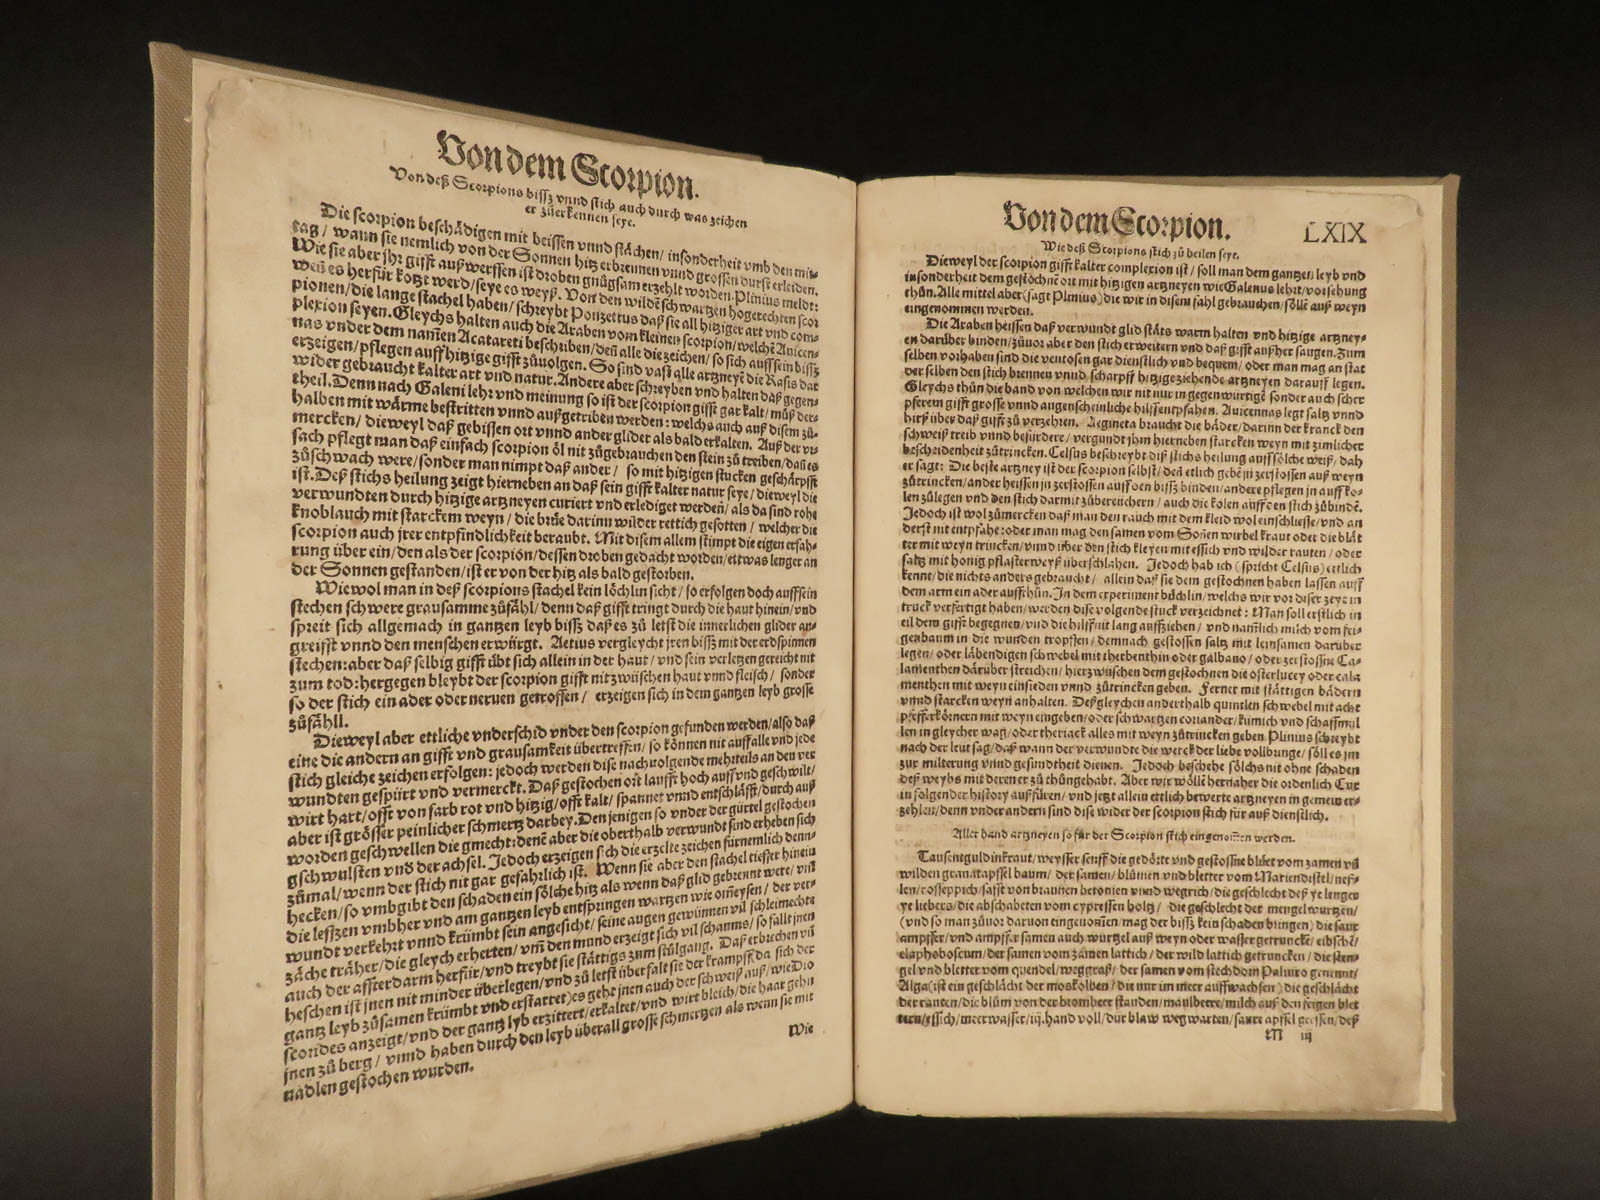 Von dem Scorpion.
Von deß Scorpions bissz vnnd stich auch durch was zeichen
er züerkennen seye.
Die scorpion beschädigen mit beissen vnnd stächen/ insonderheit vmb den mit-
tag/ wann sie nemlich von der Sonnen hitz erbrennen vnnd grossen durst erleiden.
Wie sie aber jhr gifft außwerffen ist droben gnügsam erzehlt worden. Plinius meldt:
weñ es herfür kotzt werd/ seye es weyß. Von den wildē schwartzen hogerechten scor
pionen/ die lange stachel haben/ schreybt Ponzettus daß sie all hitziger art vnd com-
plexion seyen. Gleychs halten auch die Araben vom kleinen scorpion/ welchē Auicen-
nas vnder dem namēn Acatareti beschriben/ deñ alle die zeichen/ so sich auff sein bissz
erzeigen/ pflegen auff hitzige gifft züuolgen. So sind vast alle artzneyē die Rasis dar
wider gebraucht kalter art vnd natur. Andere aber schreyben vnd halten daß gegen-
theil. Denn nach Galeni lehr vnd meinung so ist der scorpion gifft gar kalt/ müß der-
halben mit wärme bestritten vnnd außgetriben werden: welchs auch auß disem zü-
mercken/ dieweyl daß gebissen ort vnnd ander glider als bald erkalten. Auß der vr-
sach pflegt man daß einfach scorpion öl nit zügebrauchen den stein zü treiben/ dañ es
züschwach were/ sonder man nimpt daß ander/ so mit hitzigen stucken geschärpfft
ist. Deß stichs heilung zeigt hierneben an daß sein gifft kalter natur seye/ dieweyl die
verwundten durch hitzige artzneyen curiert vnd erlediget werden/ als da sind rohe
knoblauch mit starckem weyn/ die brüe darinn wilder rettich gesotten/ welcher die
scorpion auch jrer entpfindlichkeit beraubt. Mit disem allem stimpt die eigen erfah-
rung über ein/ den als der scorpion/ dessen droben gedacht worden/ ettwas lenger an
der Sonnen gestanden/ ist er von der hitz als bald gestorben.
Wiewol man in deß scorpions stachel kein löchlin sicht/ so erfolgen doch auff sein
stechen schwere grausamme züfähl/ denn daß gifft tringt durch die haut hinein/ vnd
spreit sich allgemach in gantzen leyb bissz daß es zü letst die innerlichen glider an-
greifft vnnd den menschen erwürgt. Aetius vergleycht jren bissz mit der erdspinnen
stechen: aber daß selbig gifft übt sich allein in der haut/ vnd sein verletzen gereicht nit
zum tod: hergegen bleybt der scorpion gifft nit zwüschen haut vnnd fleisch/ sonder
so der stich ein ader oder neruen getroffen/ erzeigen sich in dem gantzen leyb grosse
züfähll.
Dieweyl aber ettliche vnderschid vnder den scorpion gefunden werden/ also daß
eine die andern an gifft vnd grausamkeit übertreffen/ so können nit auff alle vnd jede
stich gleiche zeichen erfolgen: jedoch werden dise nachuolgende mehrteils an den ver
wundten gespürt vnd vermerckt. Daß gestochen ort laufft hoch auff vnd geschwilt/
wirt hart/ offt von farb rot vnd hitzig/ offt kalt/ spannet vnnd entschläfft/ durch auß
aber ist grösser peinlicher schmertz darbey. Den jenigen so vnder der gürtel gestochen
worden geschwellen die gmecht: denē aber die oberthalb verwundt sind erheben sich
gschwulsten vnd der achsel. Jedoch erzeigen sich die erzelte zeichen fürnemlich denn-
zümal/ wenn der stich nit gar gefährlich ist. Wenn sie aber den stachel tieffer hinein
hecken/ so vmbgibt den schaden ein sölche hitz als wenn daß glid gebrennt were/ vm̄
die leffzen vmbher vnd am gantzen leyb entspringen wartzen wie omeysen/ der ver-
wundt verkehrt vnnd krümbt sein angesicht/ seine augen gewünnen vil schleimechte
zäche träher/ die gleych erherten/ vm̄ den mund erzeigt sich vil schaums/ so fallt jnen
auch der affterdarm herfür/ vnd treybt sie stättigs zum stülgang. Daß erbrechen vn̄
heschen ist jnen nit minder überlegen/ vnd zü letst überfalt sie der krampff/ da sich der
gantz leyb züsamen krümbt vnd erstarret) es geht jnen auch der schweiß auß/ wie Dio
scorides anzeigt/ vnd der gantz lyb erzittert/ erkaltet/ vnd wirt bleich/ die haar gehn
jnen zü berg/ vnnd haben durch den leyb überall grosse schmertzen als wenn sie mit
nädlen gestochen wurden.
Wie
Von dem Scorpion.
LXIX
Wie deß Scorpions stich zü heilen seye.
Dieweyl der scorpion gifft kalter complexion ist/ soll man dem gantzen leyb vnd
insonderheit dem gestochnē ort mit hitzigen artzneyen wie Galenus lehrt/ vorsehung
thün. Alle mittel aber (sagt Plinius) die wir in disem fahl gebrauchen/ söllē auß weyn
eingenommen werden.
Die Araben heissen daß verwundt glid stäts warm halten vnd hitzige artzney-
en darüber binden/ züuor aber den stich erweitern vnd daß gifft außher saugen. Zum
selben vorhaben sind die ventosen gar dienstlich vnd bequem/ oder man mag an stat
der selben den stich brennen vnnd scharpff hitzige ziehende artzneyen darauff legen.
Gleychs thün die band von welchen wir nit nur in gegenwürtigē sonder auch scher
pferem gifft grosse vnnd augenscheinliche hilff entpfahen. Auicennas legt saltz vnnd
hirß über daß gifft zü verzehren. Aegineta braucht die bäder/ darinn der kranck den
schweiß treib vnnd befürdere/ vergundt jhm hierneben starcken weyn mit zimlicher
bescheidenheit zütrincken. Celsus beschreybt diß stichs heilung auff sölche weiß/ dah
er sagt: Die beste artzney ist der scorpion selbst/ deñ etlich gebē jn zerstossen auß weyn
zütrincken/ ander heissen jn zerstossen auff den bissz binden/ andere pflegen jn auff ko-
len zülegen vnd den stich darmit züberreichern/ auch die kolen auff den stich zübinden.
Jedoch ist wol zümercken daß man den rauch mit dem kleid wol einschliesse/ vnd an
derst nit entpfahe: oder man mag den samen vom Soñen wirbel kraut oder die blät
ter mit weyn trincken/ vnnd über den stich kleyen mit essich vnd wilder rauten/ oder
saltz mit honig pflasterweyß überschlahen. Jedoch hab ich (spricht Celsus) ettlich
kennt/ die nichts anders gebraucht/ allein daß sie dem gestochnen haben lassen auff
dem arm ein ader auffthün. In dem experiment büchlin/ welchs wir vor diser zeyt in
truck verfertigt haben/ werden dise volgende stuck verzeichnet: Man soll erstlich in
eil dem gifft begegnen/ vnd die hilff nit lang auffziehen/ vnd namlich milch vom fei-
genbaum in die wunden tropffen/ demnach gestossen saltz mit leinsamen darüber
legen/ oder läbendigen schwebel mit therbenthin oder galbano/ oder zerstossne Ca-
lamenthen darüber streichen/ hierzwüschen dem gestochnen die osterlucey oder cala
menthen mit weyn einsieden vnnd zütrincken geben. Ferner mit stättigen bädern
vnnd starcken weyn anhalten. Deßgleychen anderthalb quintlen schwebel mit acht
pfefferkörnern mit weyn eingeben/ oder schwartzen coriander/ kümich vnd schaffmül
len in gleycher wag/ oder theriack alles mit weyn zütrincken geben. Plinius schreybt
nach der leut sag/ daß wann der verwundte die werck der liebe vollbringe/ söll es jm
zur milterung vnnd gesundtheit dienen. Jedoch beschehe sölchs nit ohne schaden
deß weybs mit deren er zü thün gehabt. Aber wir wöllē hernaher die ordenlich Cur
in folgender history außfüren/ vnd jetzt allein ettlich bewerte artzneyen in gemein er-
zehlen/ denn vnder andern sind dise wider der scorpion stich für auß dienstlich.
Aller hand artzneyen so für der Scorpion stich eingenom̄en werden.
Tausentguldinkraut/ weysser senff die gedörte vnd gestossne blüet vom zamen vn̄
wilden granatapffel baum/ der samen/ blümen vnd bletter vom Mariendistel/ nesz-
len/ rosseppich/ safft von braunen betonien vnnd wegrich/ die geschlecht deß ye lenger
ye liebers/ die abschabeten vom cypressen holtz/ die geschlecht der mengelwurtzen/
(vnd so man züuor daruon eingenom̄en/ mag der bissz kein schaden bringen) die saur
ampffer/ vnd ampffer samen auch wurtzel auß weyn oder wasser getruncken/ eibschē/
elaphoboscum/ der samen vom zämen lattich/ der wild lattich getruncken/ die sten-
gel vnd bletter vom quendel/ weggraß/ der samen vom stechdorn Paliuro genennt/
Alga (ist ein geschlächt der moskolben/ die nur im meer auffwachsen) die geschlächt
der rauten/ die blüm von der brombeer standen/ maulbeere/ milch auß den feigen blet
tern/ essich/ meerwasser/ iij. hand voll/ dür blaw wegwarten/ saure apffel gessen/ deß
M iij